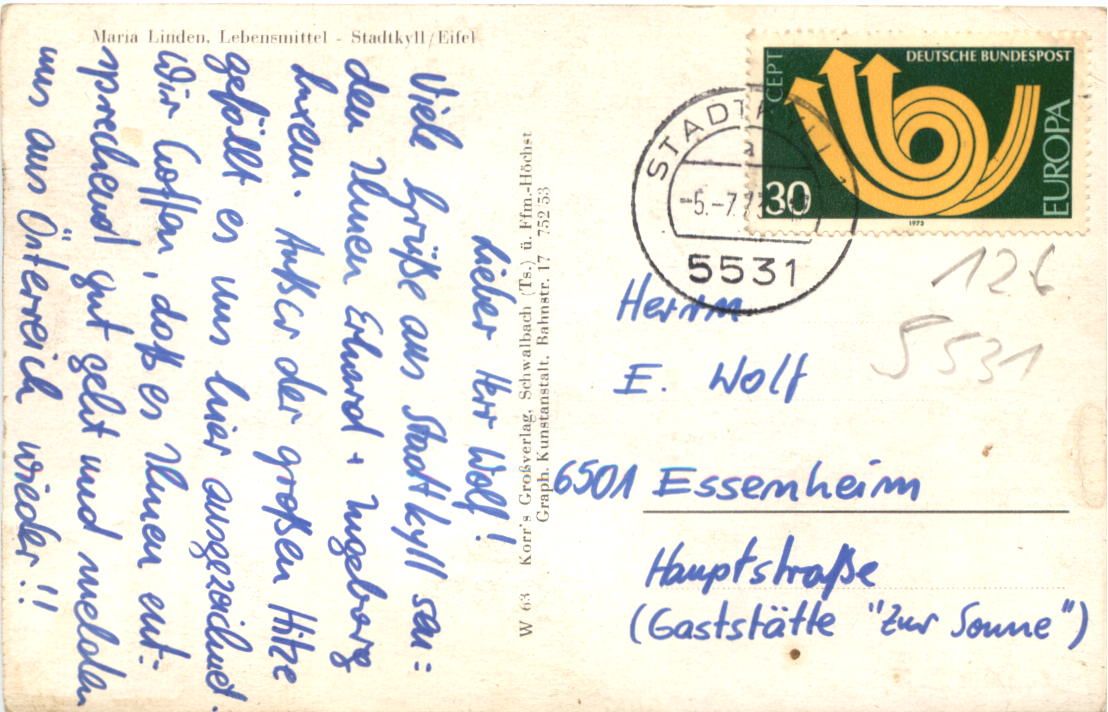 Maria Linden, Lebensmittel - Stadtkyll/Eifel
Lieber Herr Wolf!
Viele Grüße aus Stadtkyll sen=
den Ihnen Erhard + Ingeborg
Luxem. Außer der großen Hitze
gefällt es uns hier ausgezeichnet.
Wir hoffen, daß es Ihnen ent=
sprechend gut geht und melden
uns aus Österreich wieder!!
W 63 Korr's Großverlag, Schwalbach (Ts.) ü. Ffm.-Höchst
Graph. Kunstanstalt, Bahnstr. 17 752 53
DEUTSCHE BUNDESPOST
CEPT
EUROPA
30
1973
STADTKYLL
a
-5.-7.73
5531
126
5531
Herrn
E. Wolf
6501 Essenheim
Hauptstraße
(Gaststätte "Zur Sonne")